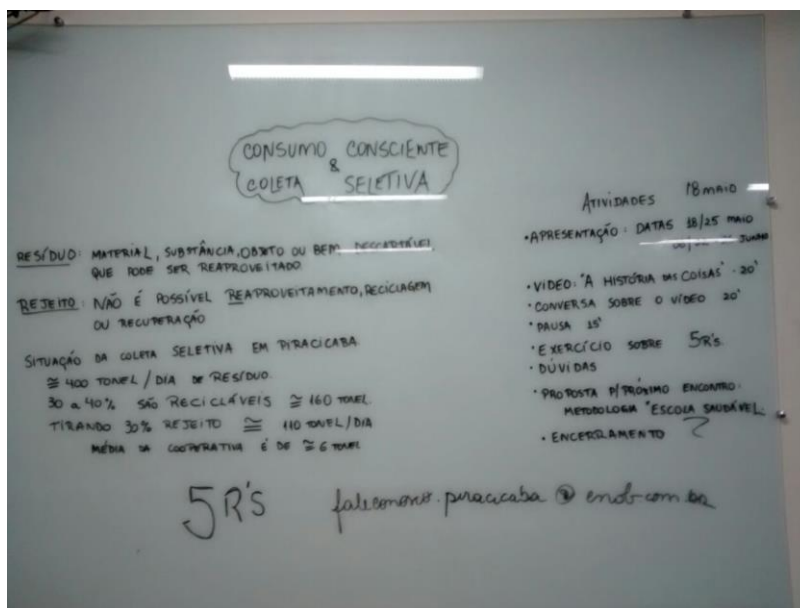 CONSUMO CONSCIENTE
&
COLETA SELETIVA
RESÍDUO: MATERIAL, SUBSTÂNCIA, OBJETO OU BEM DESCARTÁVEL,
QUE PODE SER REAPROVEITADO
REJEITO: NÃO É POSSÍVEL REAPROVEITAMENTO, RECICLAGEM
OU RECUPERAÇÃO
SITUAÇÃO DA COLETA SELETIVA EM PIRACICABA
≅ 400 TONEL / DIA DE RESÍDUO.
30 a 40% SÃO RECICLÁVEIS ≅ 160 TONEL.
TIRANDO 30% REJEITO ≅ 110 TONEL/DIA
MÉDIA DA COOPERATIVA É DE ≅ 6 TONEL
ATIVIDADES 18 MAIO
• APRESENTAÇÃO: DATAS 18/25 MAIO
JUNHO
• VIDEO: "A HISTÓRIA DAS COISAS" - 20'
• CONVERSA SOBRE O VÍDEO 20'
• PAUSA 15'
• EXERCÍCIO SOBRE 5R's.
• DÚVIDAS
• PROPOSTA P/ PRÓXIMO ENCONTRO:
METODOLOGIA "ESCOLA SAUDÁVEL
• ENCERRAMENTO
5R'S faleconosco.piracicaba@enob.com.br